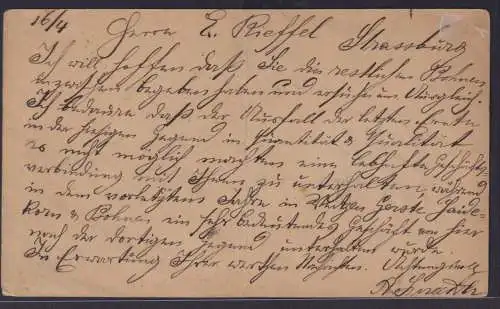 16/4
Herrn E. Rieffel Strassburg
Ich will hoffen daß Sie die restlichen Bohnen
inzwischen begeben haben und ersuche um Ausgleich.
Ich bedaure daß der Ausfall der letzten Ernte
in der hiesigen Gegend in Quantität & Qualität
es nicht möglich machten eine lebhafte Geschäfts-
verbindung mit Ihnen zu unterhalten, während
in dem vorletzten Jahre in Weizen Gerste Haide-
korn & Bohnen ein sehr bedeutendes Geschäft von hier
nach der dortigen Gegend unterhalten wurde.
In Erwartung Ihrer werthen Nachrichten. Achtungsvoll